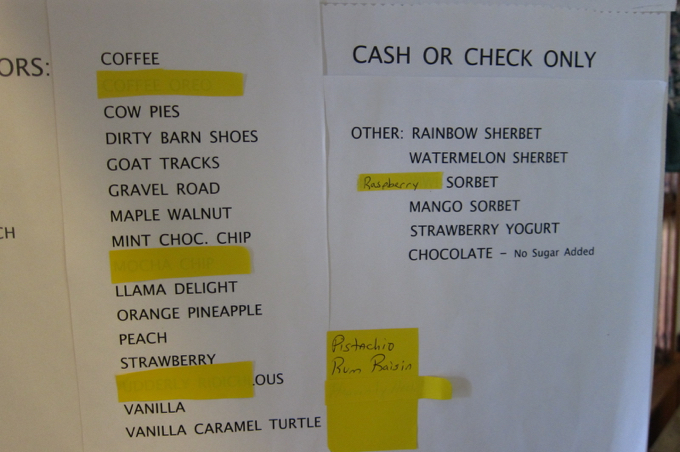 ORS:
CH
COFFEE
COFFEE OREO
COW PIES
DIRTY BARN SHOES
GOAT TRACKS
GRAVEL ROAD
MAPLE WALNUT
MINT CHOC. CHIP
MOCHA CHIP
LLAMA DELIGHT
ORANGE PINEAPPLE
PEACH
STRAWBERRY
OUS
VANILLA
VANILLA CARAMEL TURTLE
CASH OR CHECK ONLY
OTHER: RAINBOW SHERBET
WATERMELON SHERBET
Raspberry SORBET
MANGO SORBET
STRAWBERRY YOGURT
CHOCOLATE – No Sugar Added
Pistachio
Rum Raisin